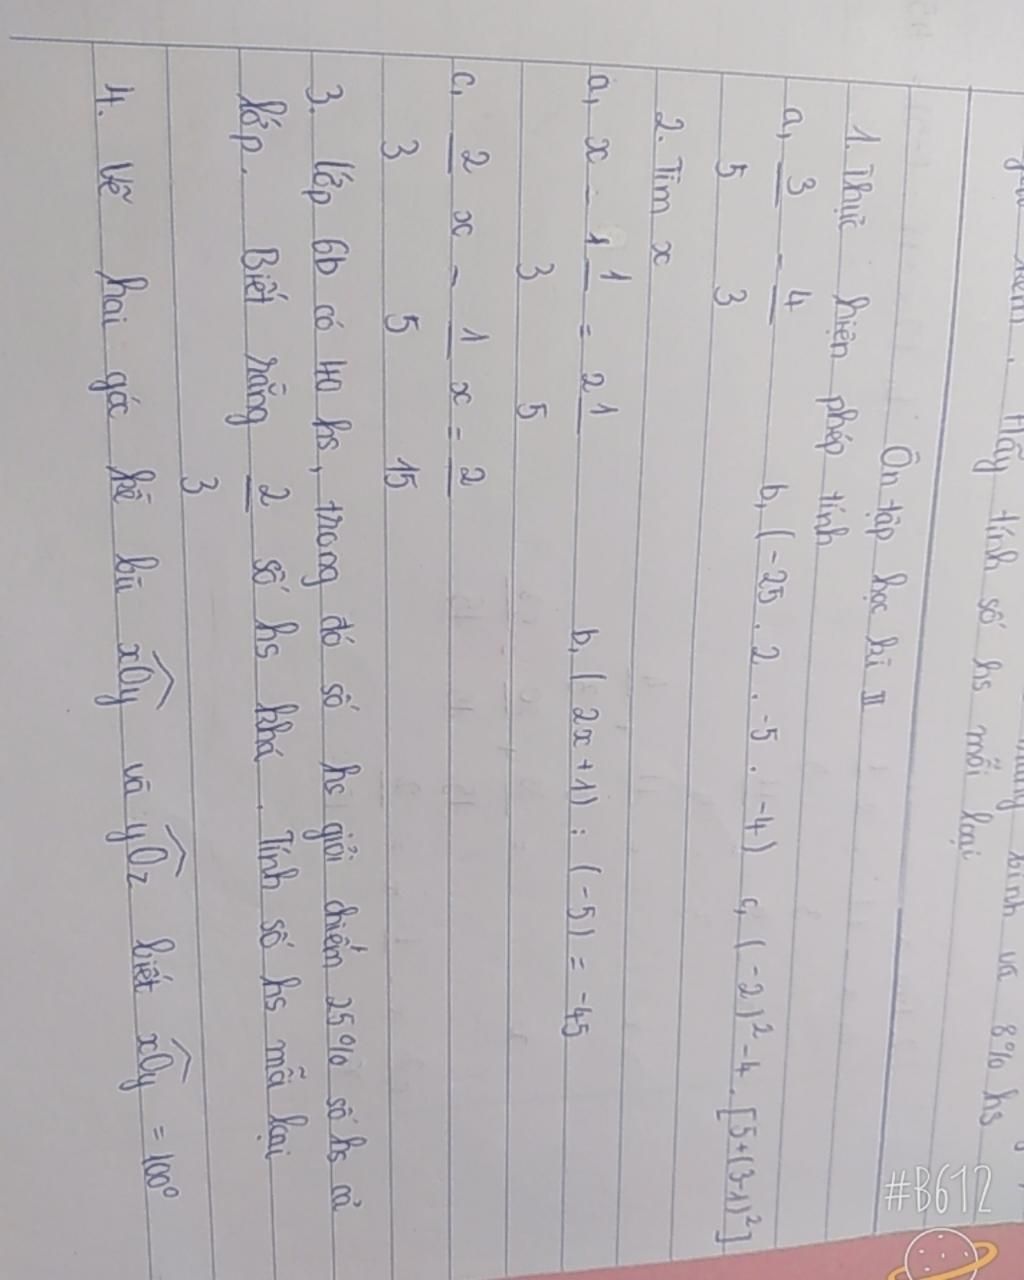 tính số hs mỗi loại
bình và 8% hs
Ôn tập học kì II
1. Thực hiện phép tính
a, 3/5 - 4/3 b, (-25 . 2 . -5 . -4) c, (-2)² - 4 . [5+(3-1)²]
2. Tìm x
a, x - 1 1/3 = 2 1/5 b, ( 2x+1) : (-5) = -45
c, 2/3 x - 1/5 x = 2/15
3. lớp 6b có 40 hs, trong đó số hs giỏi chiếm 25% số hs cả
lớp. Biết rằng 2/3 số hs khá . Tính số hs mỗi lại
4. Vẽ hai góc kề bù xOy và yOz biết xOy = 100°
#B612